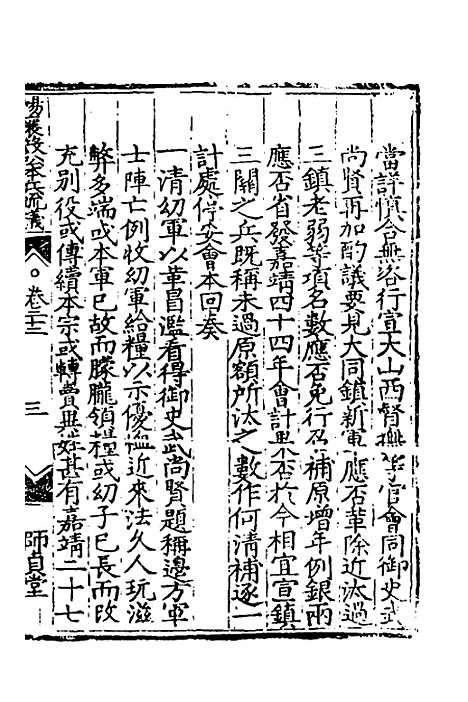 當詳慎合無咨行宣大山西督撫等官會同御史武
尚賢再加酌議要見大同鎮新軍應否革除近汰過
三鎮老弱等項名數應否免行召補原增年例銀兩
應否省發嘉靖四十四年會計果否於今相宜宣鎮
三關之兵既稱未過原額所汰之數作何清補逐一
計處停妥會本回奏
一清幼軍以革冒濫看得御史武尚賢題稱邊方軍
士陣亡例收幼軍給糧以示優恤近來法久人玩滋
弊多端或本軍已故而朦朧領糧或幼子已長而改
充別役或傳續本宗或轉賣異姓甚有嘉靖二十七
楊襄毅公本兵疏議
卷二十三
三
師貞堂